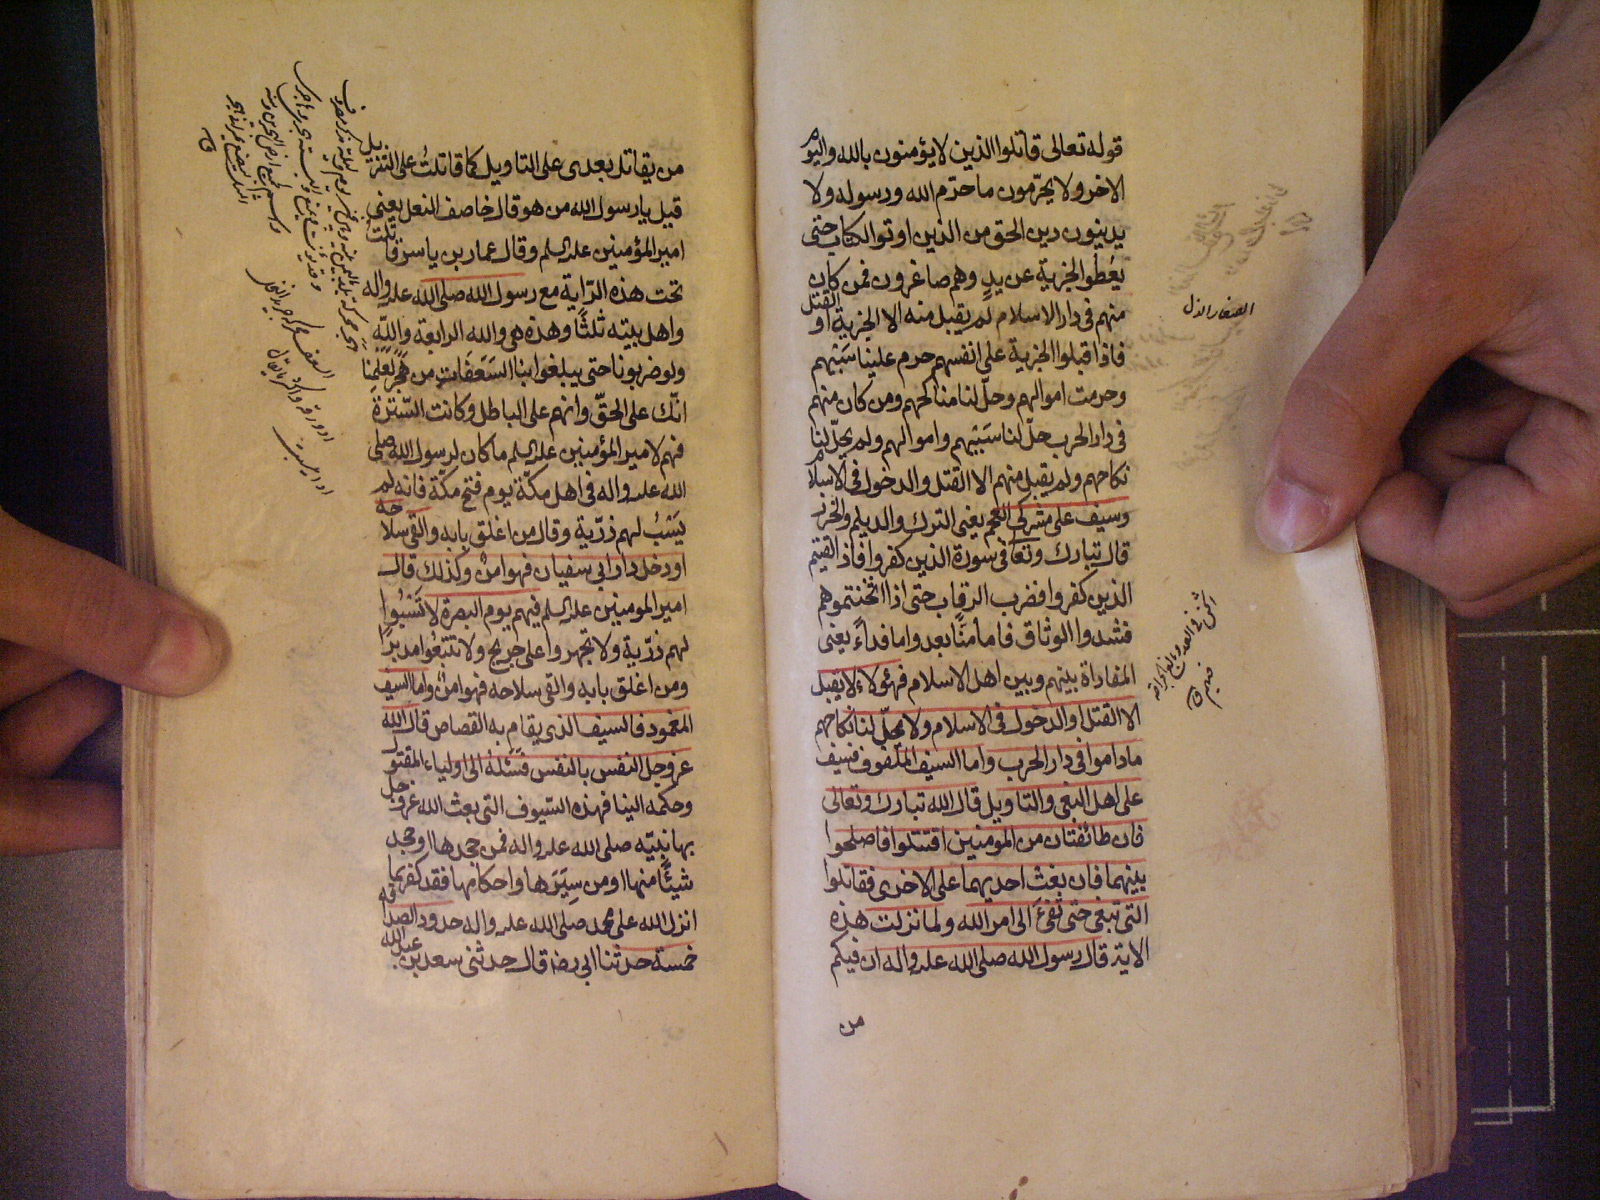 قوله تعالى قاتلوا الذين لا يؤمنون بالله واليوم
الاخر ولا يحرّمون ما حرّم الله ورسوله ولا
يدينون دين الحق من الذين اوتوا الكتاب حتى
يعطوا الجزية عن يدٍ وهم صاغرون فمن كان
منهم فى دار الاسلام لم يقبل منه الا الجزية او القتل
فاذا قبلوا الجزية على انفسهم حرم علينا سَبْيهم
وحرمت اموالهم وحلّ لنا مناكحهم ومن كان منهم
فى دار الحرب حلّ لنا سَبْيهم واموالهم ولم يحلّ لنا
نكاحهم ولم يقبل منهم الا القتل والدخول فى الاسلام
وسيف على مشركى العجم يعنى الترك والديلم والخزر
قال تبارك وتعا فى سورة الذين كفروا فاذا لقيتم
الذين كفروا فضرب الرقاب حتى اذا اثخنتموهم
فشدوا الوثاق فاما منًّا بعد واما فداءً يعنى
المفاداة بينهم وبين اهل الاسلام فهؤلاء لا يقبل
الا القتل او الدخول فى الاسلام ولا يحلّ لنا نكاحهم
ماداموا فى دار الحرب واما السيف الملفوف فسيف
على اهل البغى والتاويل قال الله تبارك وتعالى
فان طائفتان من المومنين اقتتلوا فاصلحوا
بينهما فان بغت احديهما على الاخرى فقاتلوا
التى تبغى حتى تفئ الى امر الله ولما نزلت هذه
الاية قال رسول الله صلى الله عله واله ان فيكم
من
الصغار الذل
من يقاتل بعدى على التاويل كما قاتلتُ على التنزيل
قيل يا رسول الله من هو قال خاصف النعل يعنى
امير المؤمنين عله السلم وقال عمار بن ياسر قاتلت
تحت هذه الرّاية مع رسول الله صلى الله عله واله
واهل بيته ثلثًا وهذه هى والله الرابعة واللّه
ولو ضربونا حتى يبلغوا بنا السَعَفات من هَجَر لعلمنا
انّك على الحقّ وانهم على الباطل وكانت السّيرة
فيهم لامير المؤمنين عله السلم ما كان لرسول الله صلى
الله عله واله فى اهل مكّة يوم فتح مكّة فانه لم
يَسْبُ لهم ذرّية وقال من اغلق بابه والقى سلاحه
او دخل دار ابى سفيان فهو امن وكذلك قال
امير المومنين عله السلم فيهم يوم البصرة لا تَسْبُوا
لهم ذرّية ولا تجهزوا على جريح ولا تتبعُوا مدبرًا
ومن اغلق بابه والقى سلاحه فهو امنٌ واما السيف
المغمود فالسيف الذى يقام به القصاص قال الله
عز وجل النفس بالنفس فسَلّه الى اولياء المقتول
وحكمه الينا فهذه السّيوف التى بعث الله عز وجل
بها نبيّه صلى الله عله واله فمن جحدها او جحد
شيئًا منها او من سِيَرها واحكامها فقد كفر بما
انزل الله على محمد صلى الله عله واله حدود الصداقه
خمسة حدثنا ابى رضه قال حدثنى سعد بن عبد الله